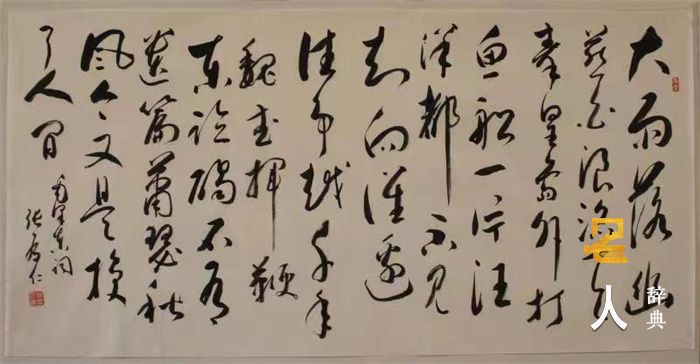 大雨落幽
燕白浪滔天
秦皇岛外打
鱼船一片汪
洋都不见
知向谁边
往事越千年
魏武揮鞭
东临碣石有
遗篇萧瑟秋
风今又是换
了人间
毛泽东词
名人
辞典